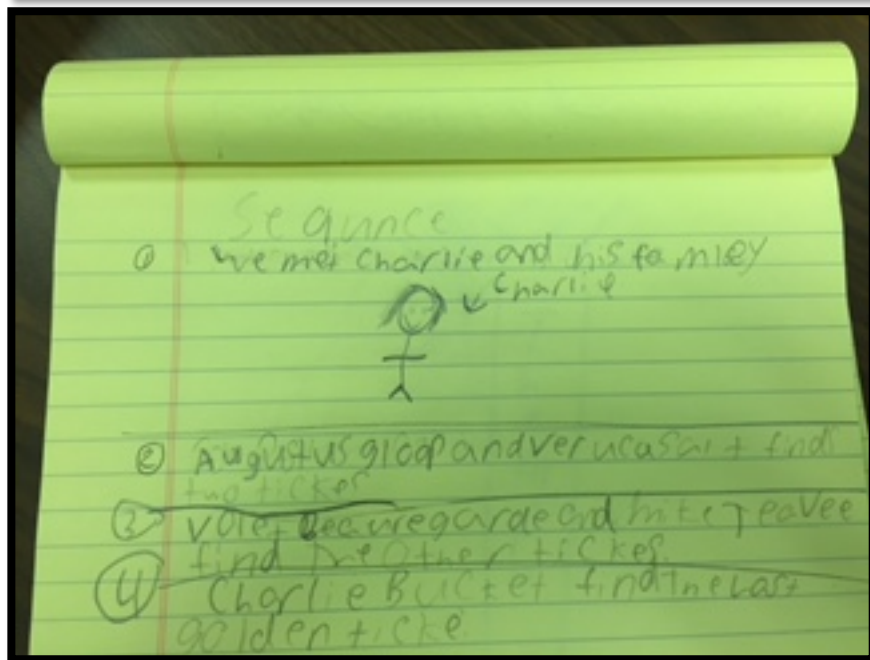 Sequnce
① we met Charlie and his famley
Charlie
② Augustus gloop and verucasalt find
two ticket
③ Violet Beauregarde and mike Teavee
find the other ticket.
④ Charlie Bucket find the last
golden ticke